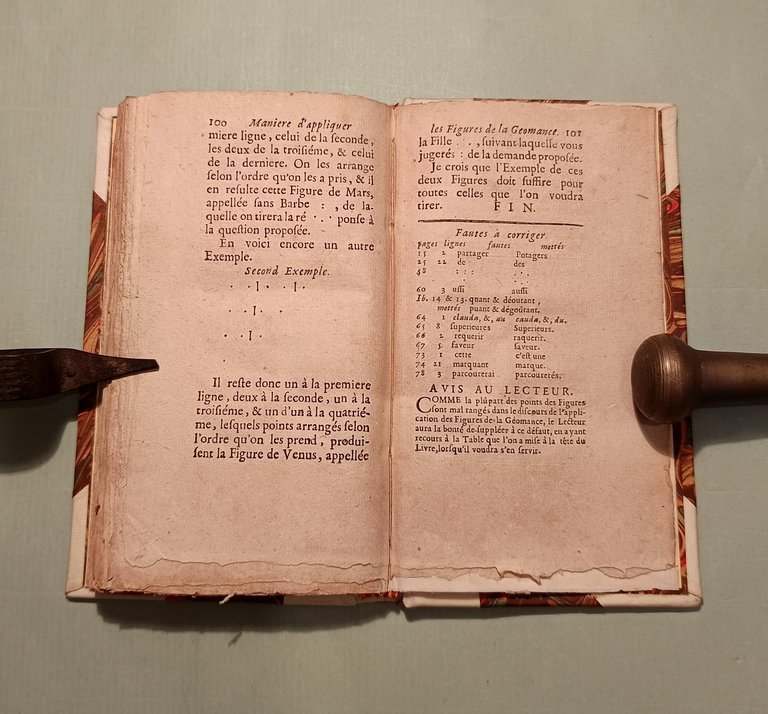 100 Maniere d'appliquer
miere ligne, celui de la seconde,
les deux de la troisiéme, & celui
de la derniere. On les arrange
selon l'ordre qu'on les a pris, & il
en resulte cette Figure de Mars,
appellée sans Barbe : . , de la-
quelle on tirera la ré · . · ponse à
la question proposée.
En voici encore un autre
Exemple.
Second Exemple.
· · I · · I ·
· · I ·
· · I ·
Il reste donc un à la premiere
ligne, deux à la seconde, un à la
troisiéme, & un d'un à la quatrié-
me, lesquels points arrangés selon
l'ordre qu'on les prend, produi-
sent la Figure de Venus, appellée
les Figures de la Geomance. 101
la Fille . · . , suivant laquelle vous
jugerés : de la demande proposée.
Je crois que l'Exemple de ces
deux Figures doit suffire pour
toutes celles que l'on voudra
tirer. FIN.
Fautes à corriger.
pages lignes fautes mettés
15 2 partager Potagers
25 22 de des
58 : : : . · .
60 3 ussi aussi
Ib. 14 & 13. quant & déoutant,
mettés puant & dégoutant.
64 1 clauda, &, au cauda, &, du.
65 8 superieures Superieurs.
66 2 requerir raquerir.
67 5 faveur saveur.
73 1 cette c'est une
74 21 marquant marque.
78 3 parcourerai parcourerés.
AVIS AU LECTEUR.
COMME la plûpart des points des Figures
sont mal rangés dans le discours de l'appli-
cation des Figures de la Géomance, le Lecteur
aura la bonté de suppléer à ce défaut, en ayant
recours à la Table que l'on a mise à la tête du
Livre, lorsqu'il voudra s'en servir.